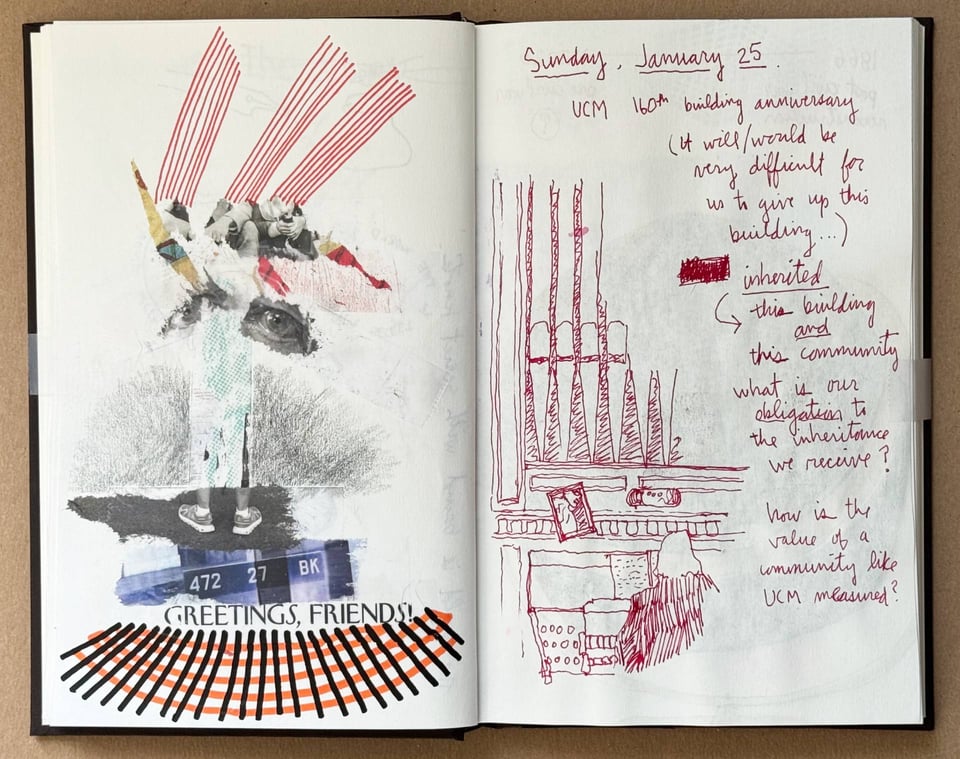 472 27 BK
GREETINGS, FRIENDS!
Sunday, January 25.
UCM 160th building anniversary
(it will/would be
very difficult for
us to give up this
building...)
inherited
this building
and
this community
what is our
obligation to
the inheritance
we receive?
how is the
value of a
community like
UCM measured?